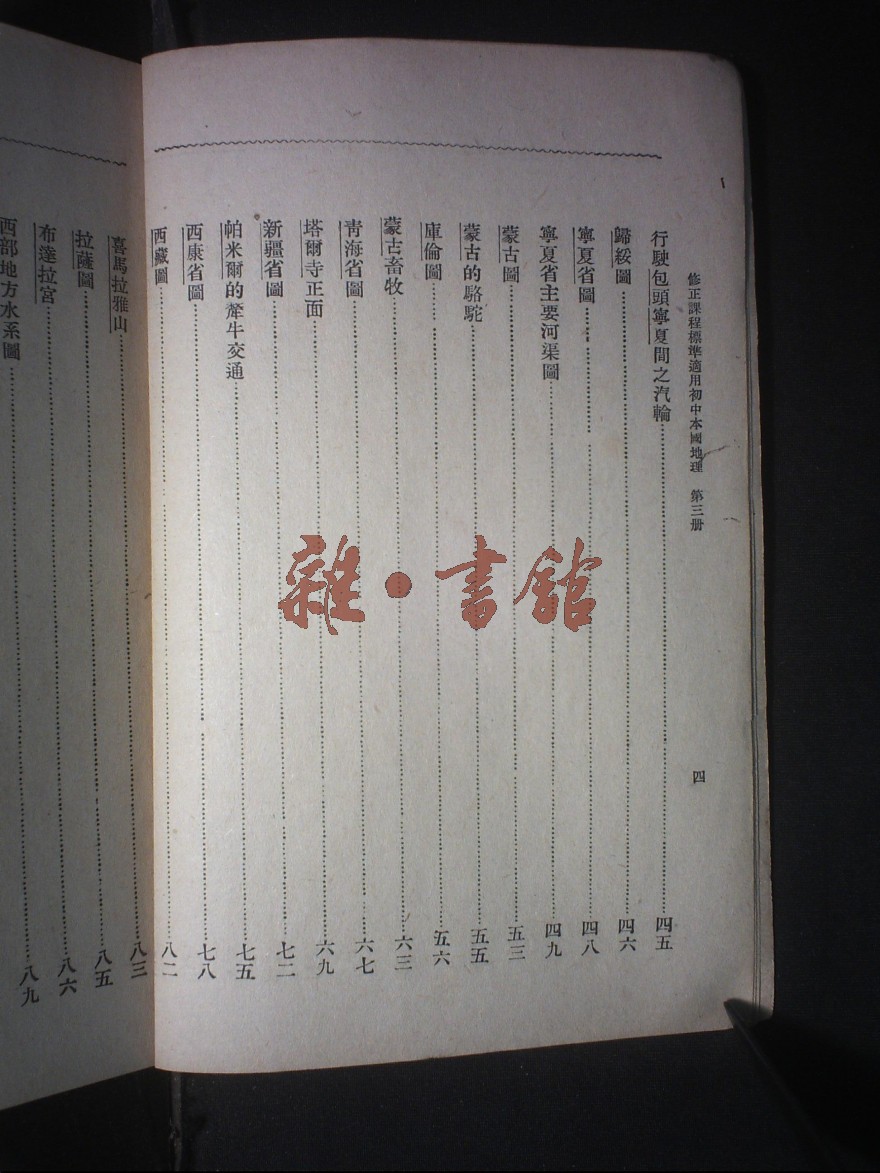 修正課程標準適用初中本國地理 第三册
四
行駛包頭寧夏間之汽輪 四五
歸綏圖 四六
寧夏省圖 四八
寧夏省主要河渠圖 四九
蒙古圖 五三
蒙古的駱駝 五五
庫倫圖 五六
蒙古畜牧 六三
青海省圖 六七
塔爾寺正面 六九
新疆省圖 七二
帕米爾的犛牛交通 七五
西康省圖 七八
西藏圖 八二
喜馬拉雅山 八三
拉薩圖 八五
布達拉宮 八六
西部地方水系圖 八九
雜·書館